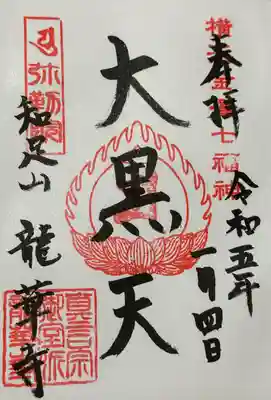 横浜金沢七福神
奉拝
令和五年
一月四日
大黒天
弥勒
知足山 龍華寺
真言宗
御室派
龍華寺